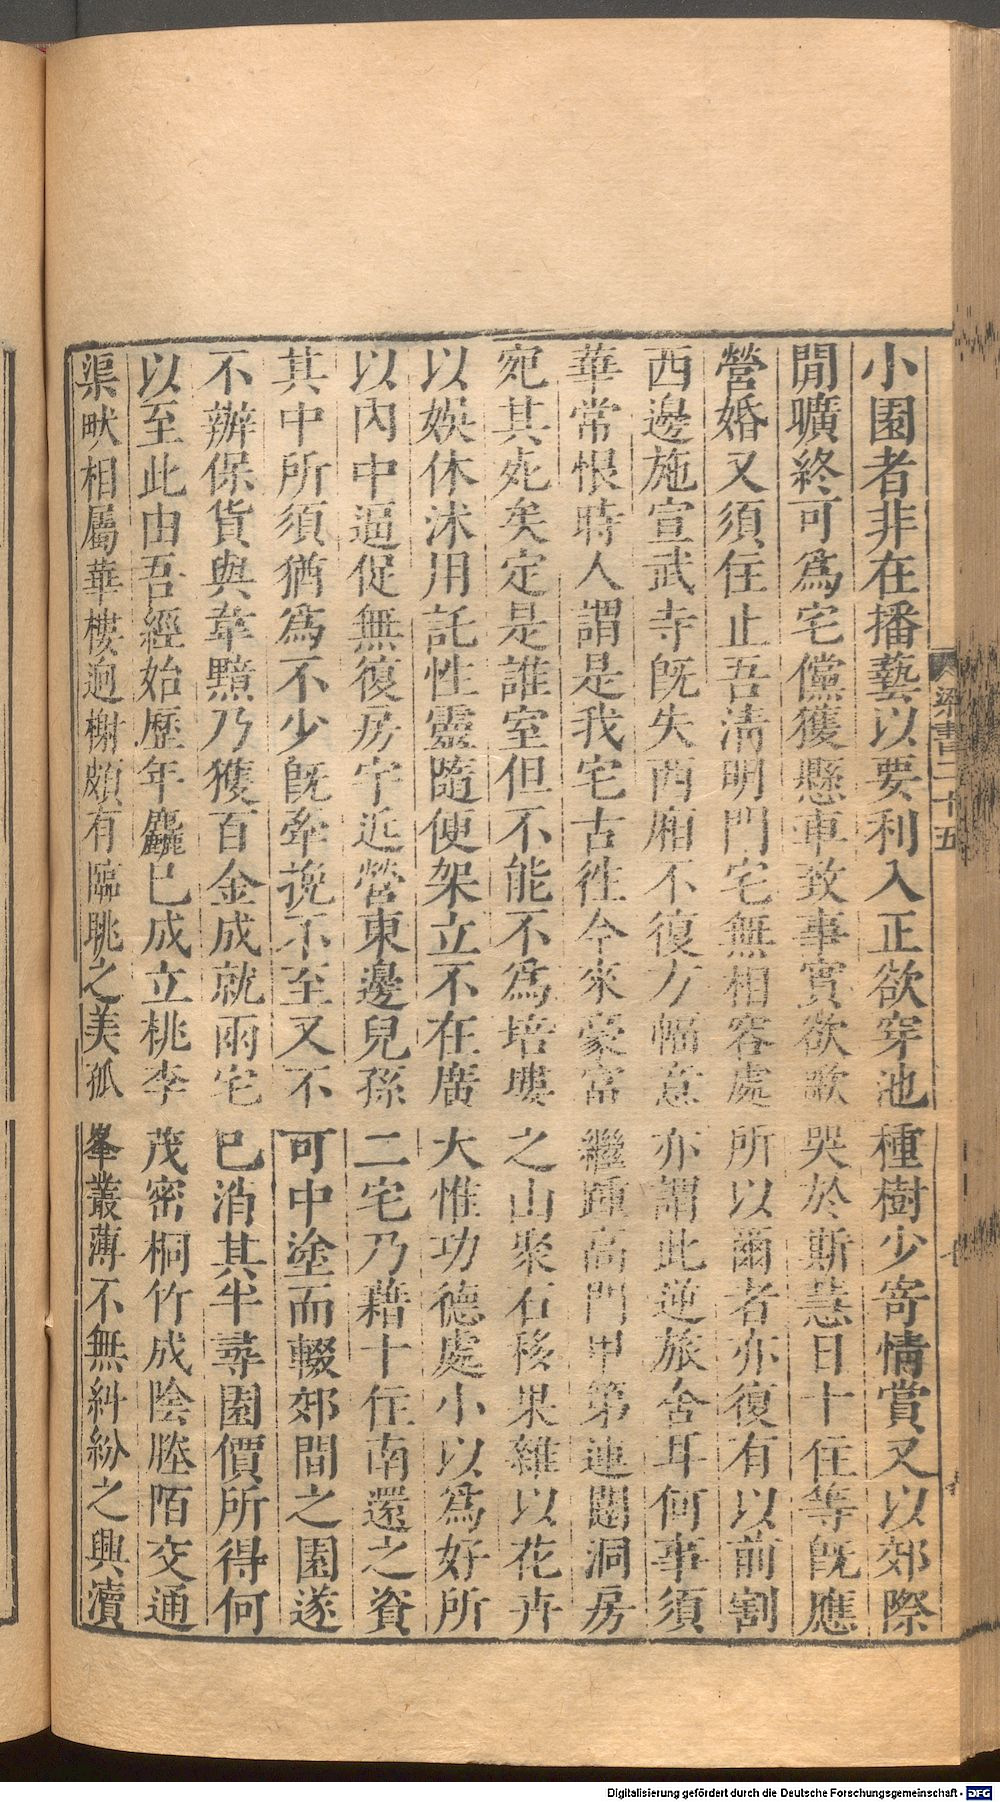 小園者非在播藝以要利入正欲穿池種樹少寄情賞又以郊際
閒曠終可爲宅儻獲懸車致事實欲歌哭於斯慧日十住等旣應
營婚又須住止吾清明門宅無相容處所以爾者亦復有以前割
西邊施宣武寺旣失西廂不復方幅意亦謂此逆旅舍耳何事須
華常恨時人謂是我宅古徃今來豪富繼踵高門甲第連闥洞房
宛其死矣定是誰室但不能不爲培塿之山聚石移果雜以花卉
以娛休沐用託性靈隨便架立不在廣大惟功德處小以爲好所
以內中逼促無復房宇近營東邊兒孫二宅乃藉十住南還之資
其中所須猶爲不少旣牽挽不至又不可中塗而輟郊間之園遂
不辦保貨與韋黯乃獲百金成就兩宅已消其半尋園價所得何
以至此由吾經始歷年麤已成立桃李茂密桐竹成陰塍陌交通
渠畎相屬華樓逈榭頗有臨眺之美孤峯叢薄不無糾紛之興瀆
梁書二十五
Digitalisierung gefördert durch die Deutsche Forschungsgemeinschaft - DFG